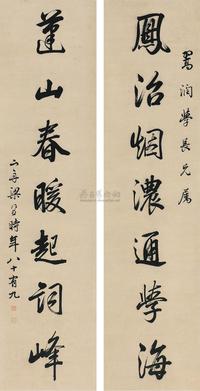 潤學長兄属
鳳沼烟濃通學海
蓬山春暖起詞峰
山舟梁同書時年八十有九